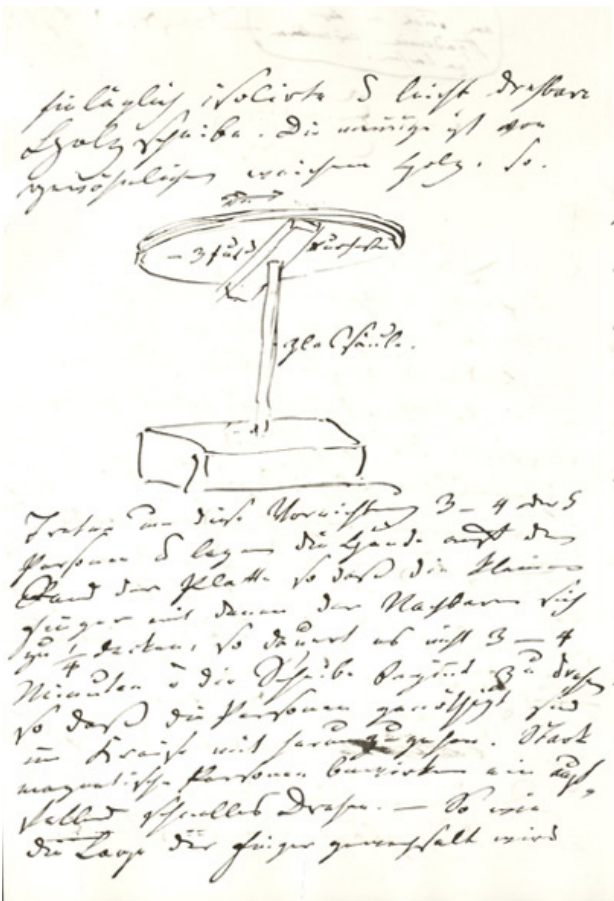 füglich isolirte & leicht drehbare
Holzscheibe. Die meinige ist von
gewöhnlichem weichem Holz. So.
– 3 Fuß Durchm
Glassäule.
Treten an diese Vorrichtung 3 – 4 oder 5
Personen & legen die Hände auf den
Rand der Platte so daß die kleinen
Finger mit denen der Nachbarn sich
zu 1/4 decken, so dauert es nicht 3 – 4
Minuten & die Scheibe beginnt zu drehen
so daß die Personen genöthigt sind
im Kreise mit herumzugehen. Stark
magnetische Personen bewirken ein auf,
fallend schnelles Drehen. – So wie
die Lage der Finger gewechselt wird